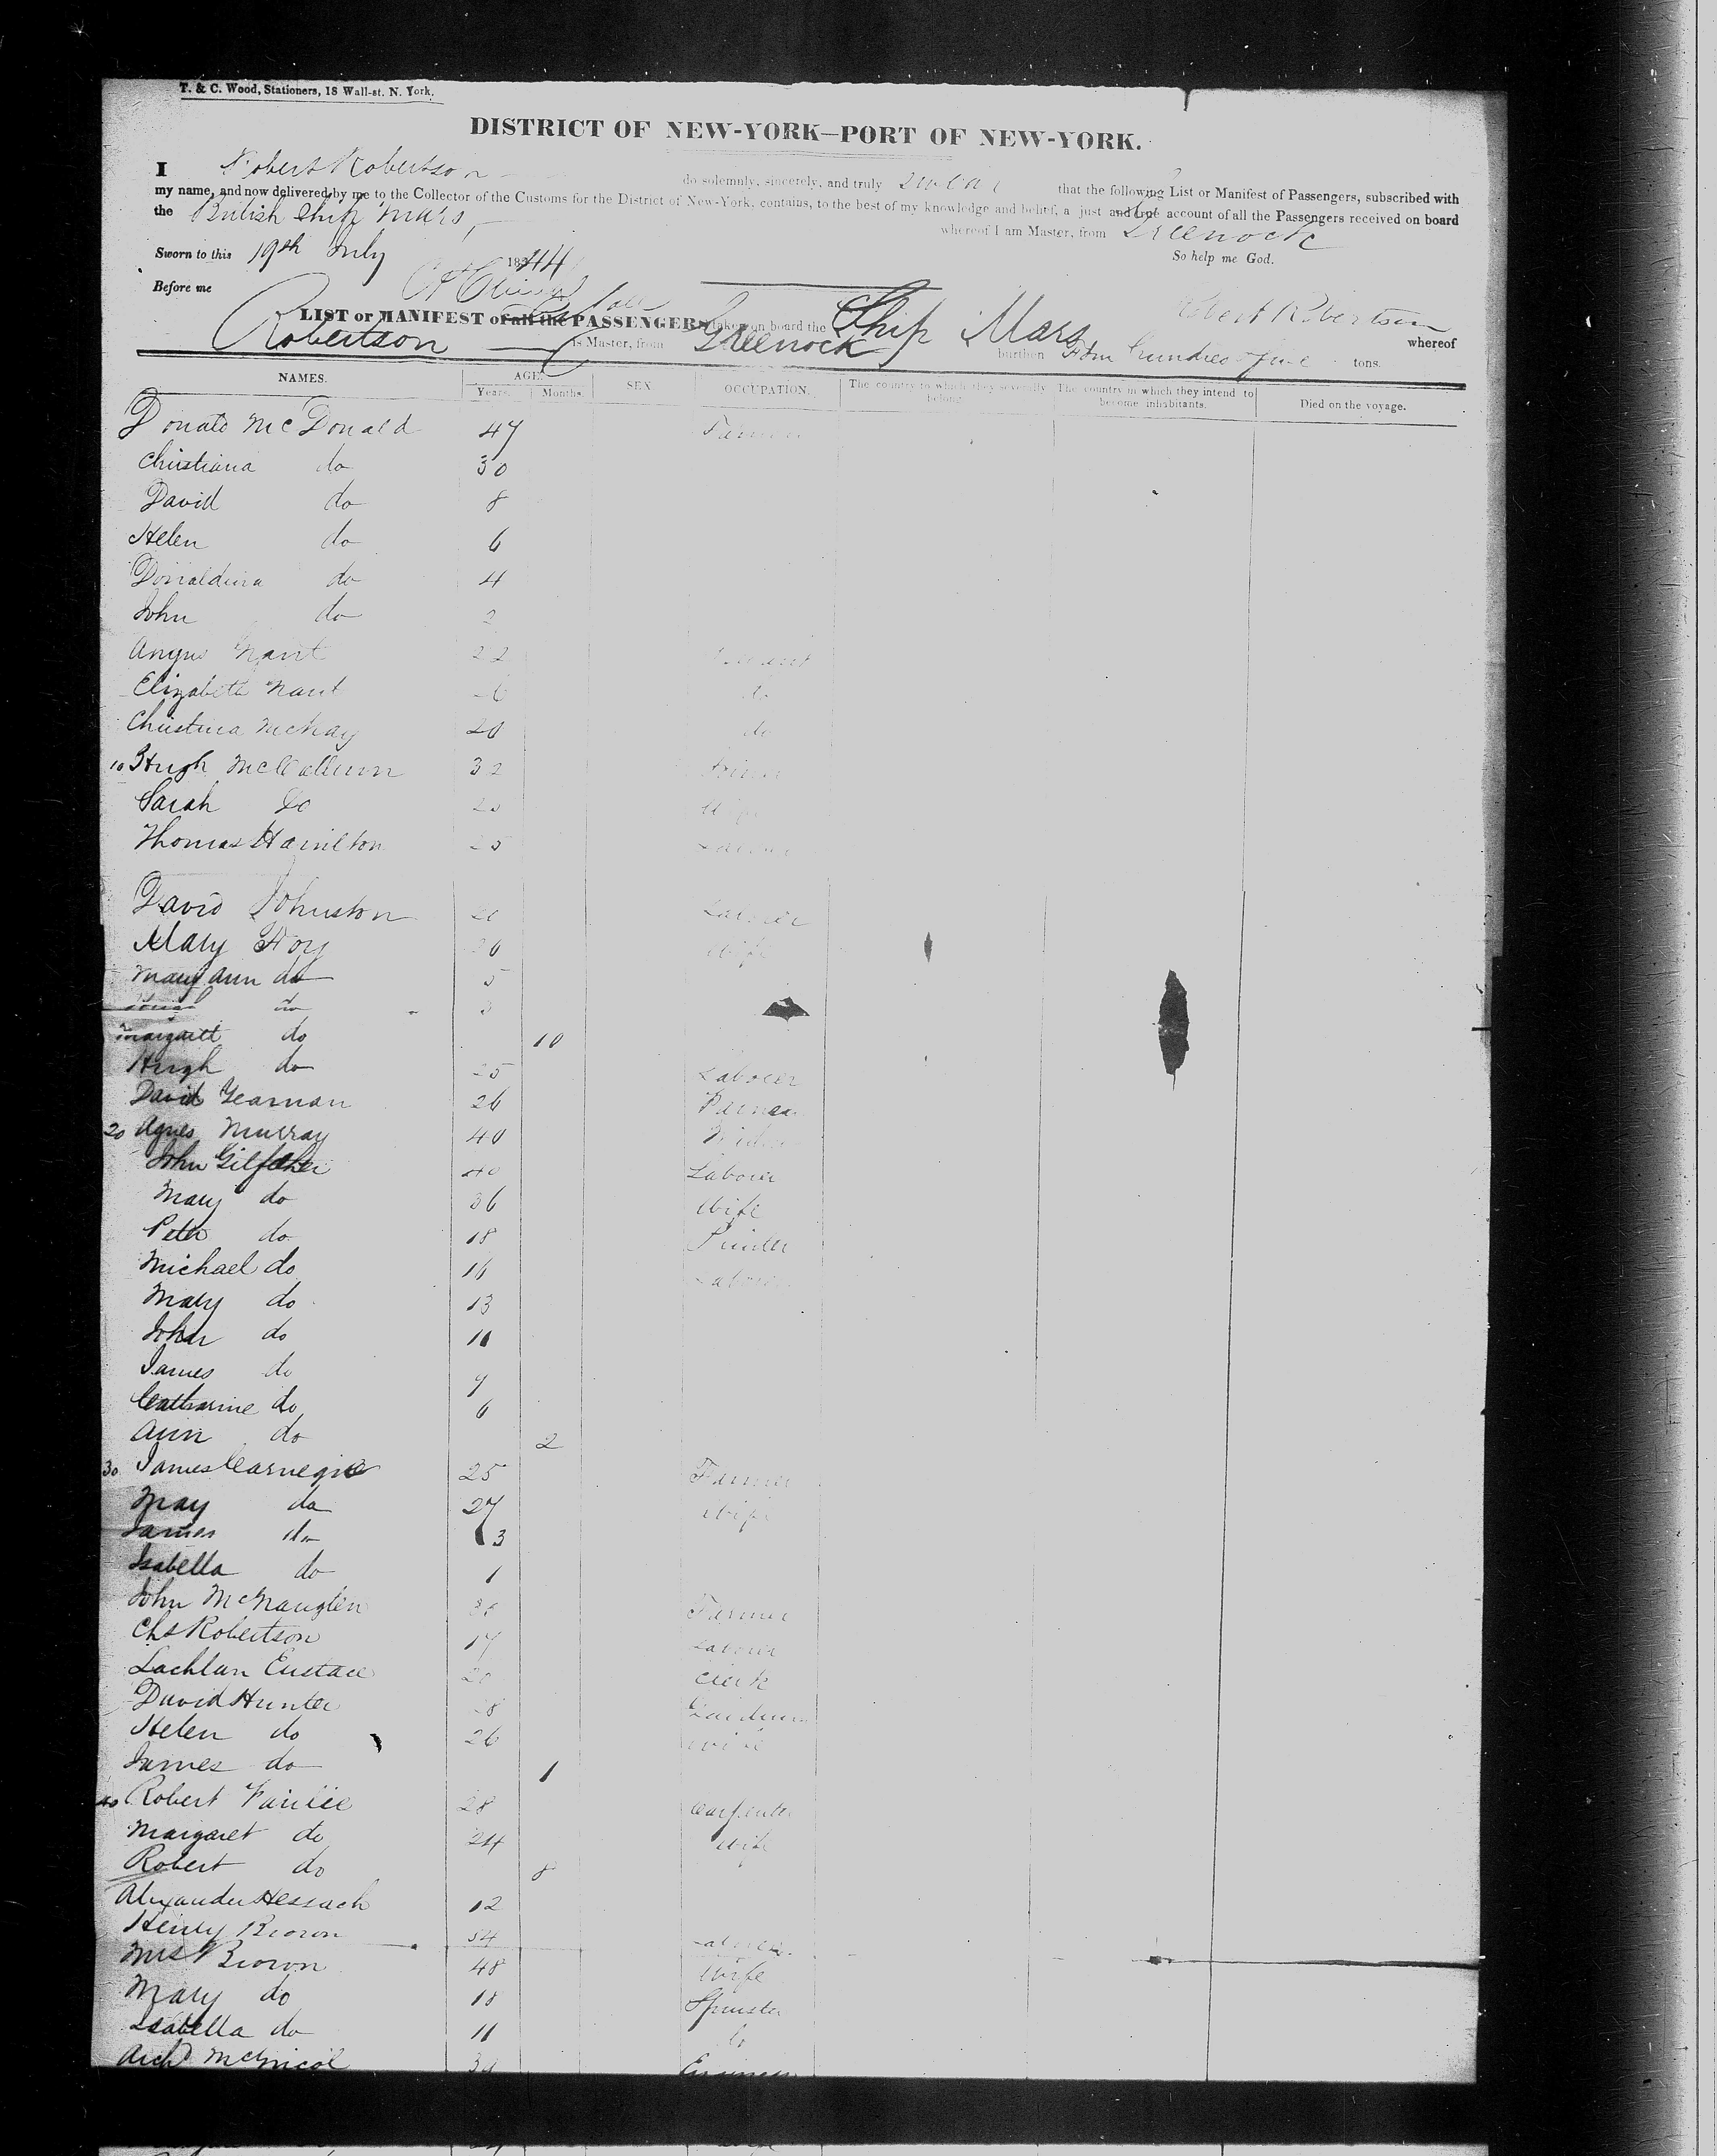 T. & C. Wood, Stationers, 18 Wall-st. N. York.
DISTRICT OF NEW-YORK—PORT OF NEW-YORK.
I Robert Robertson do solemnly, sincerely, and truly swear that the following List or Manifest of Passengers, subscribed with
my name, and now delivered by me to the Collector of the Customs for the District of New-York, contains, to the best of my knowledge and belief, a just and true account of all the Passengers received on board
the British Ship Mars, whereof I am Master, from Greenock
Sworn to this 19th July 1844 So help me God.
Before me
Robert Robertson
LIST or MANIFEST of all the PASSENGERS taken on board the Ship Mars whereof
Robertson is Master, from Greenock burthen Four hundred & five tons.
NAMES. AGE. SEX. OCCUPATION. The country to which they severally belong. The country in which they intend to become inhabitants. Died on the voyage.
Years. Months.
Donald McDonald 47 Farmer
Christiana do 30
David do 8
Helen do 6
Donaldina do 4
John do 2
Angus Grant 22 Servant
Elizabeth Grant do
Christina McKay 20 do
10 Hugh McCallum 32
Sarah Do Wife
Thomas Hamilton 25 Labourer
David Johnston 20 Labourer
Mary Foy Wife
Mary Ann do 5
do 3
Margaret do 10
Hugh do 25 Labourer
David Yearnan 26
20 Agnes Murray 40 Widow
John Gilfether 40 Labourer
Mary do 36 Wife
Peter do 18 Printer
Michael do 16 Labourer
Mary do 13
John do 11
James do 9
Catharine do 6
Ann do 2
30 James Carnegie 25 Farmer
May do 27 Wife
James do 3
Isabella do 1
John McNaughten Farmer
Chs Robertson 17 Labourer
Lachlan Eustace 20 Clerk
David Hunter 28 Gardener
Helen do 26 Wife
James do 1
40 Robert Fairlie 28 Carpenter
Margaret do 24 Wife
Robert do 8
Alexander Hessach 12
Henry Brown 54 Labourer
Mrs Brown 48 Wife
Mary do 18 Spinster
Isabella do 11 do
Archd McNicol Engineer